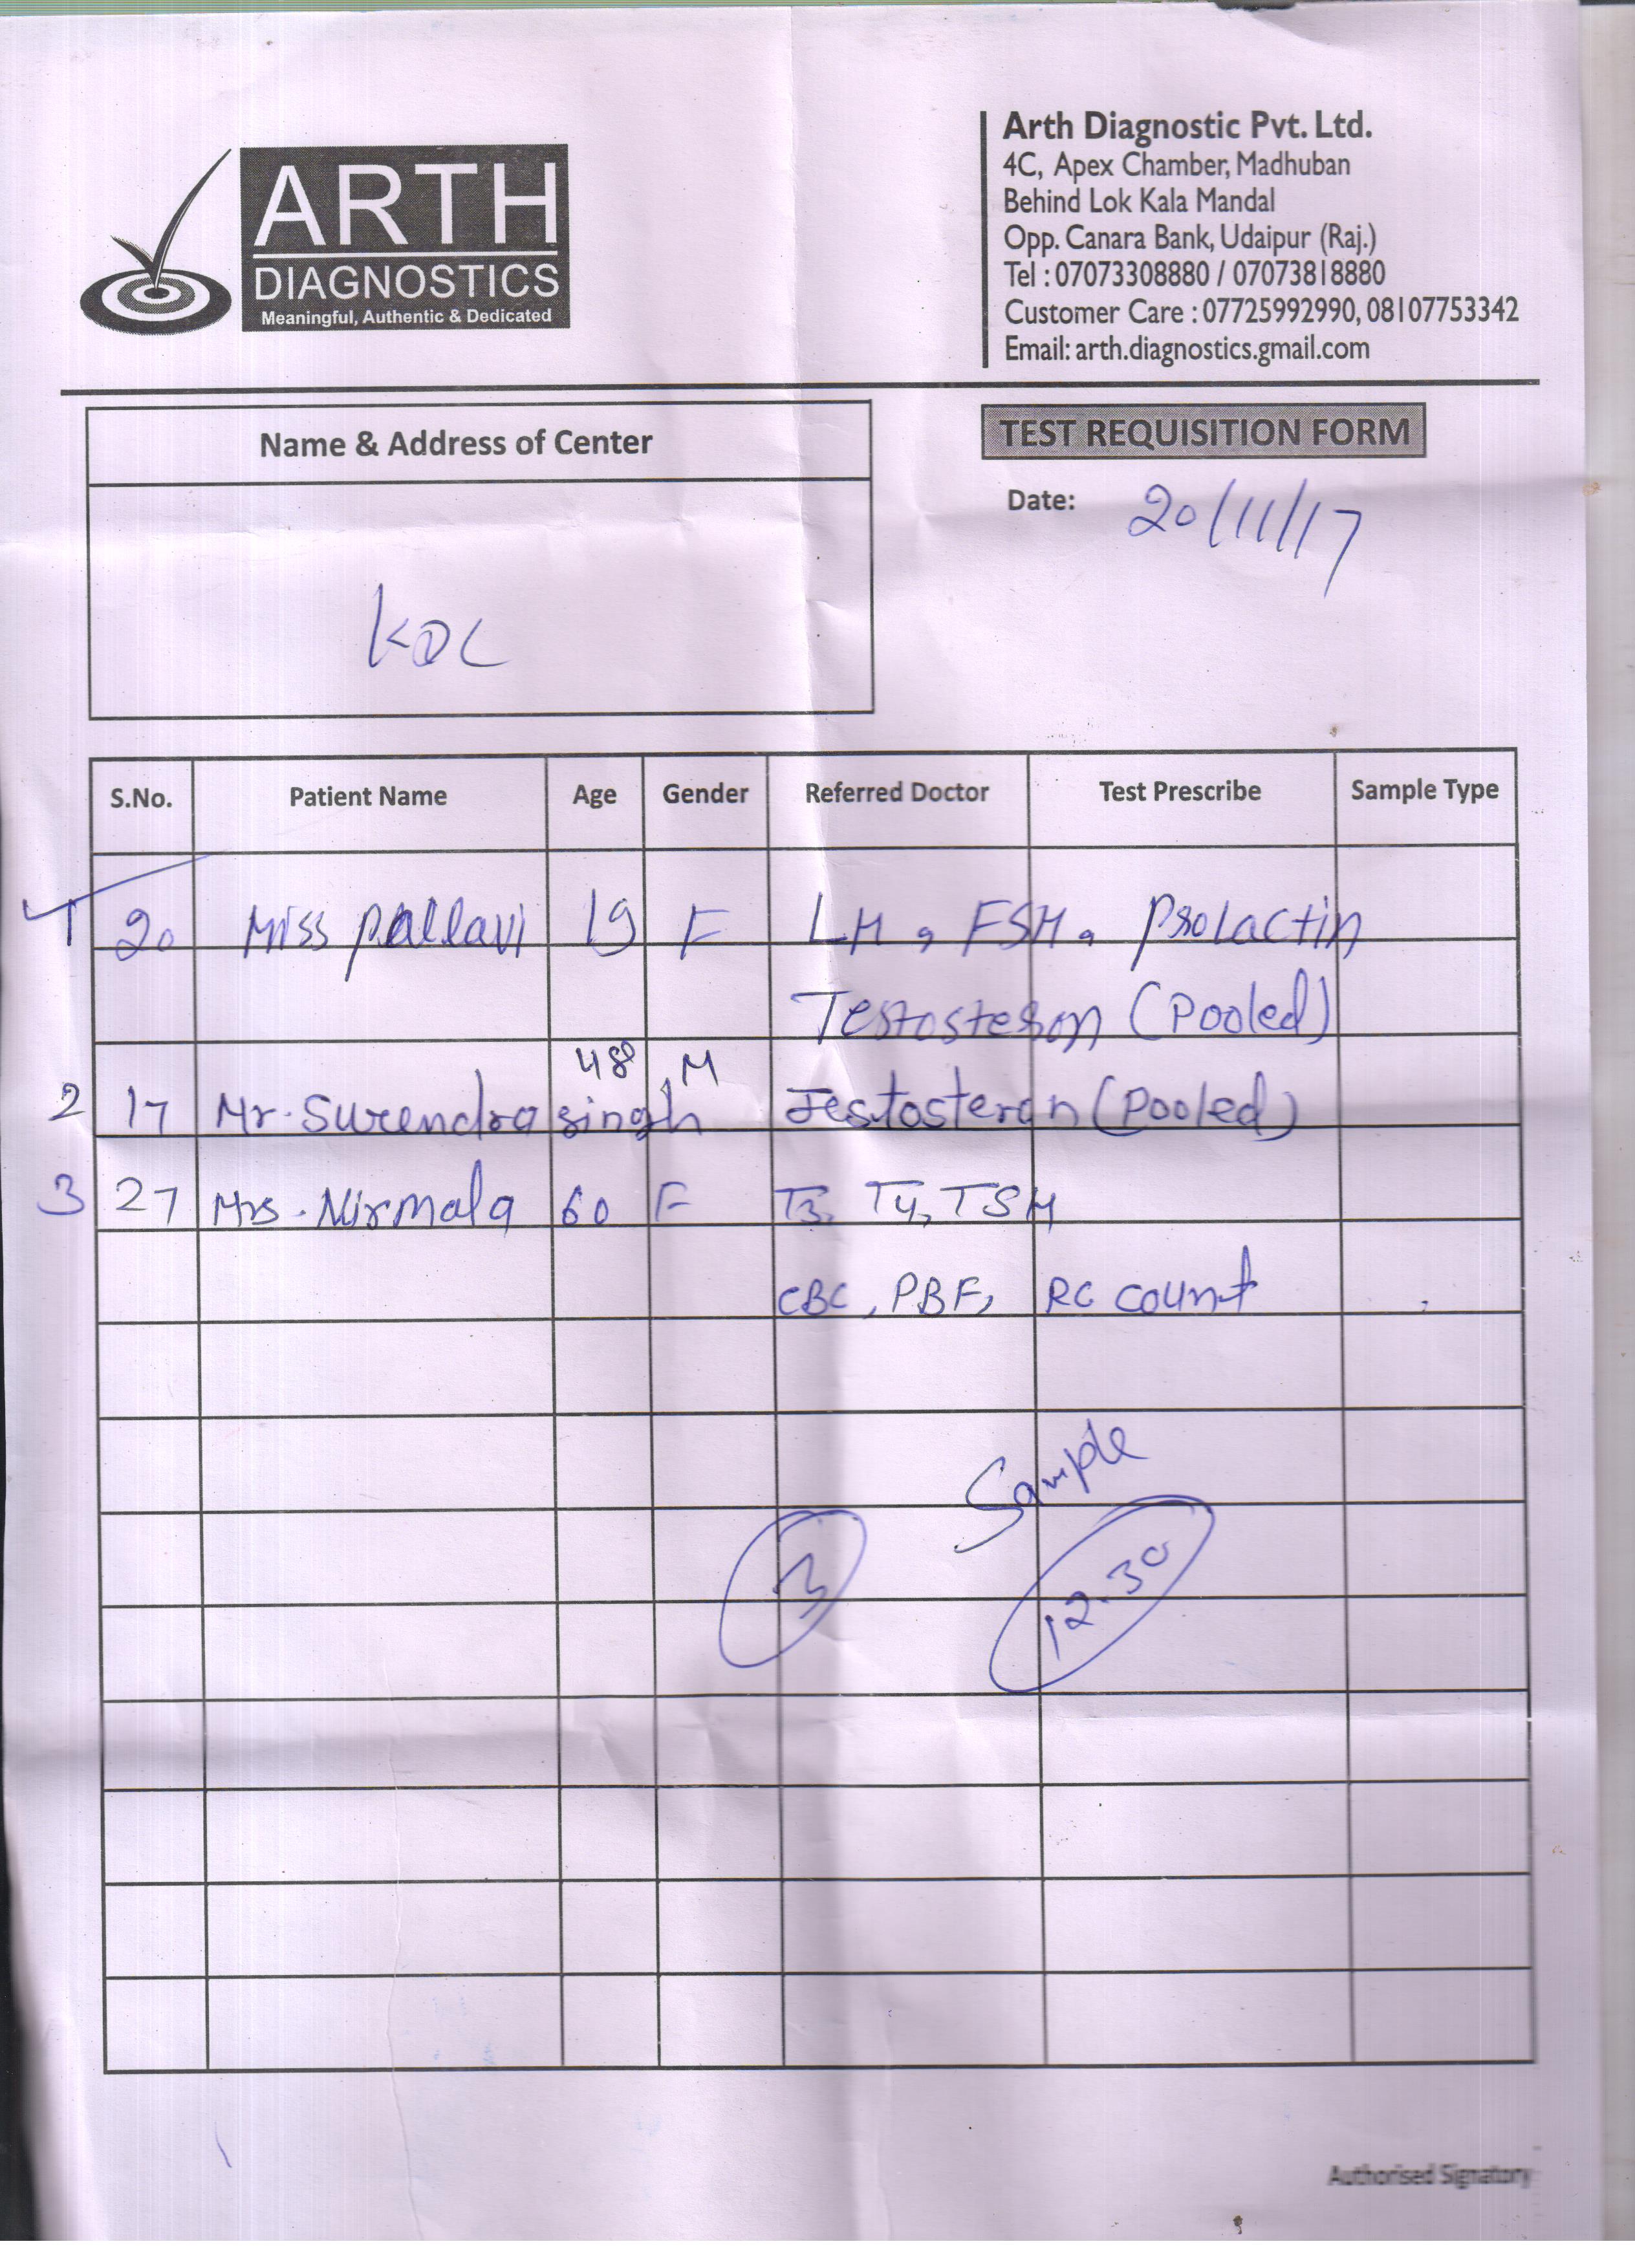 ARTH
DIAGNOSTICS
Meaningful, Authentic & Dedicated
Arth Diagnostic Pvt. Ltd.
4C, Apex Chamber, Madhuban
Behind Lok Kala Mandal
Opp. Canara Bank, Udaipur (Raj.)
Tel : 07073308880 / 07073818880
Customer Care : 07725992990, 08107753342
Email: arth.diagnostics.gmail.com
Name & Address of Center
TEST REQUISITION FORM
Date: 20/11/17
KDC
S.No. Patient Name Age Gender Referred Doctor Test Prescribe Sample Type
1 20 Miss Pallavi 19 F LH, FSH, Prolactin
Testosteron (Pooled)
48 M
2 17 Mr. Surendra singh Testosteron (Pooled)
3 27 Mrs. Nirmala 60 F T3, T4, TSH
CBC, PBF, RC count
Sample
3 12.30
Authorised Signatory